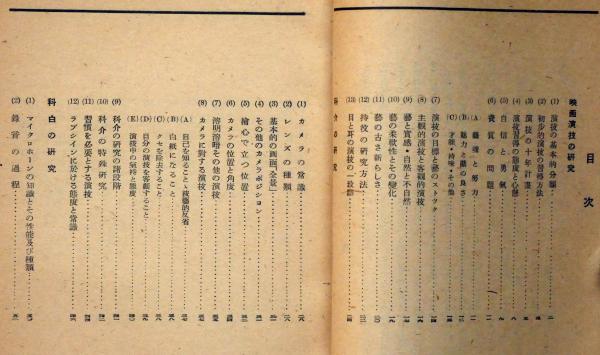 目次
映画演技の研究
(1) 演技の基本的分類
(2) 初歩的演技の習得方法
(3) 演技の十年計畫
(4) 演技習得の態度と心懸
(5) 自信と勇氣
(6) 資質の問題
(A) 藝魂と努力
(B) 魅力と顔の良さ
(C) 才能・持味・その他
(7) 演技の目標と藝のストック
(8) 主観的演技と客觀的演技
(9) 藝と實感・自然と不自然
(10) 藝の柔軟性とその變化
(11) 藝の古さ新らしさ
(12) 持役の研究方法
(13) 目と耳の演技の一致論
科介の研究
(1) カメラの常識
(2) レンズの種類
(3) 基本的畫面「全景」
(4) その他のカメラポジション
(5) 繪心で立つ位置
(6) カメラの位置と角度
(7) 溶明溶暗その他の演技
(8) カメラに對する演技
(A) 自己を知ること、技藝的反省
(B) 白紙になること
(C) クセを除去すること
(D) 自分の演技を客觀すること
(E) 演技中の氣持と態度
(9) 科介の研究の諸段階
(10) 科介の特殊研究
(11) 習慣を必要とする演技
(12) ラブシインに於ける態度と常識
科白の研究
(1) マイクロホーンの知識とその性能及び種類
(2) 錄音の過程